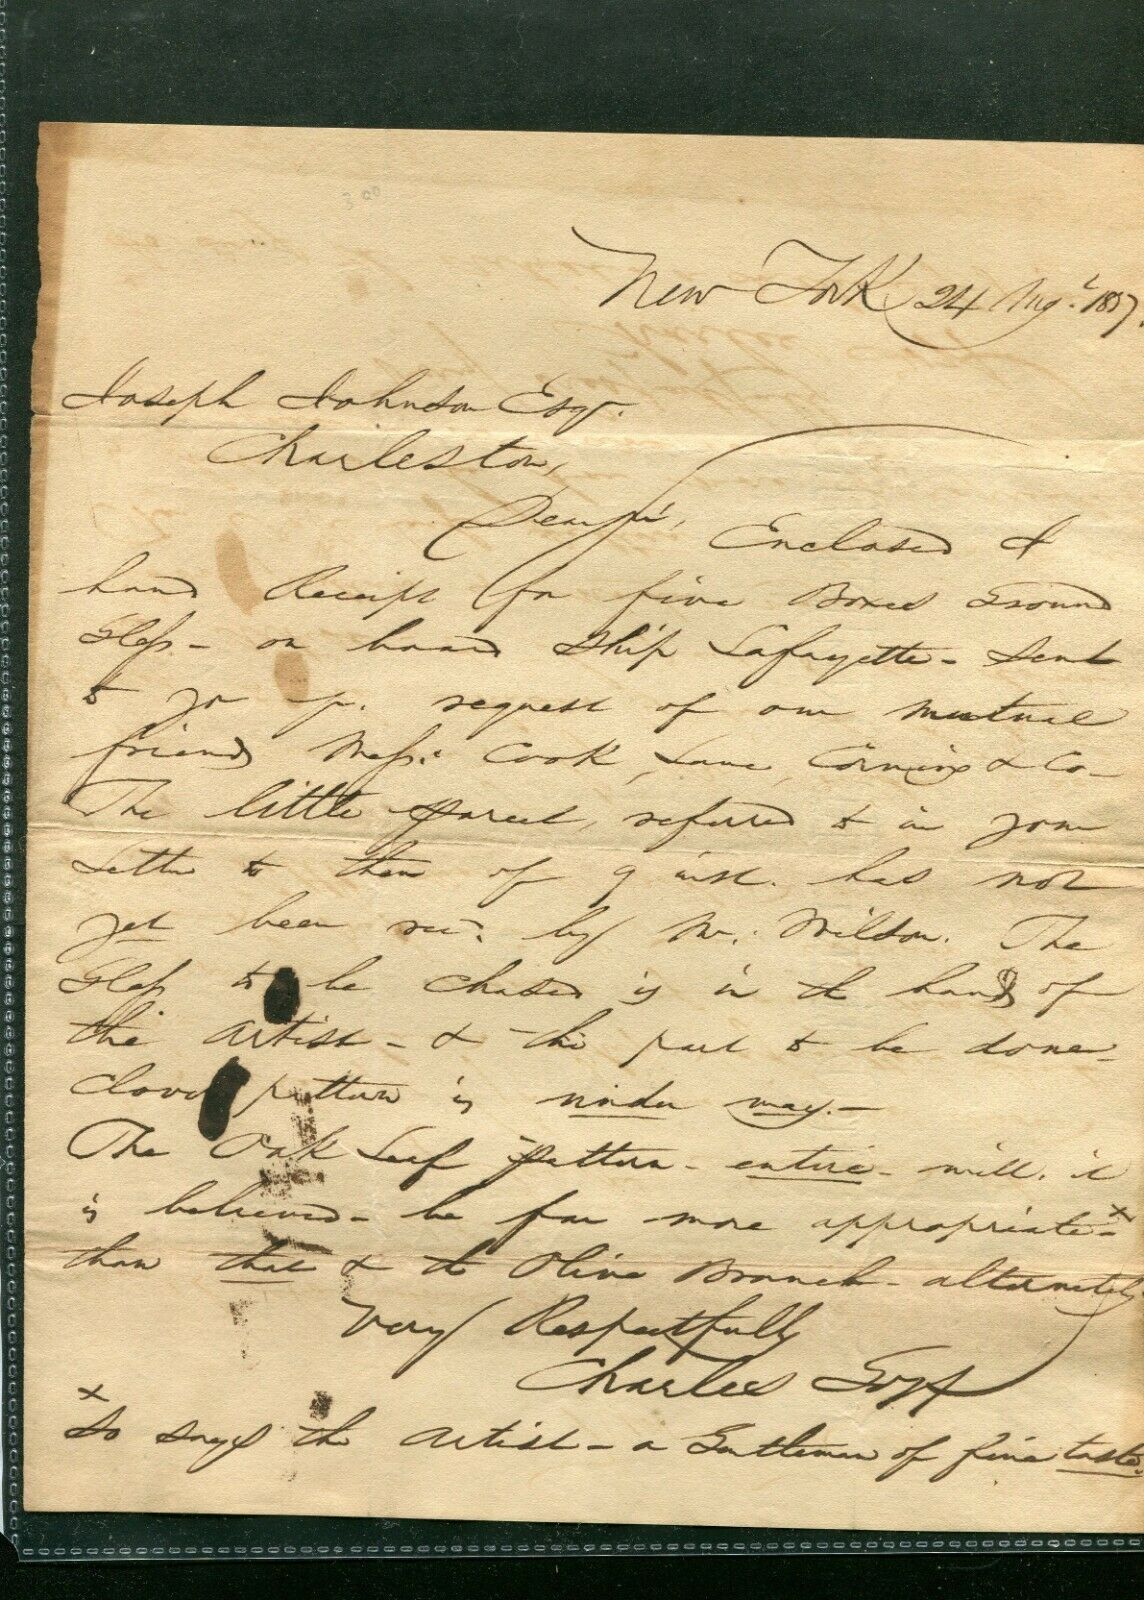 3 00
New York 24 Augt. 18
Joseph Johnson Esqr.
Charleston,
Dear Sir, Enclosed I
hand Receipt for five Boxes Ground
Glass - on board Ship Lafayette - sent
to you pr. request of our mutual
friends Messrs. Cook, Lane, Corning & Co -
The little parcel, referred to in your
letter to them of 9 inst. has not
yet been recd. by Mr. Wilson. The
Glass to be chased is in the hands of
the artist - & the part to be done -
Clover pattern is under way. -
The Oak Leaf pattern - entire - will, it
is believed - be far more appropriate - x
than that & the Olive Branch - alternately
Very Respectfully
Charles
x
So says the artist - a Gentleman of fine taste.